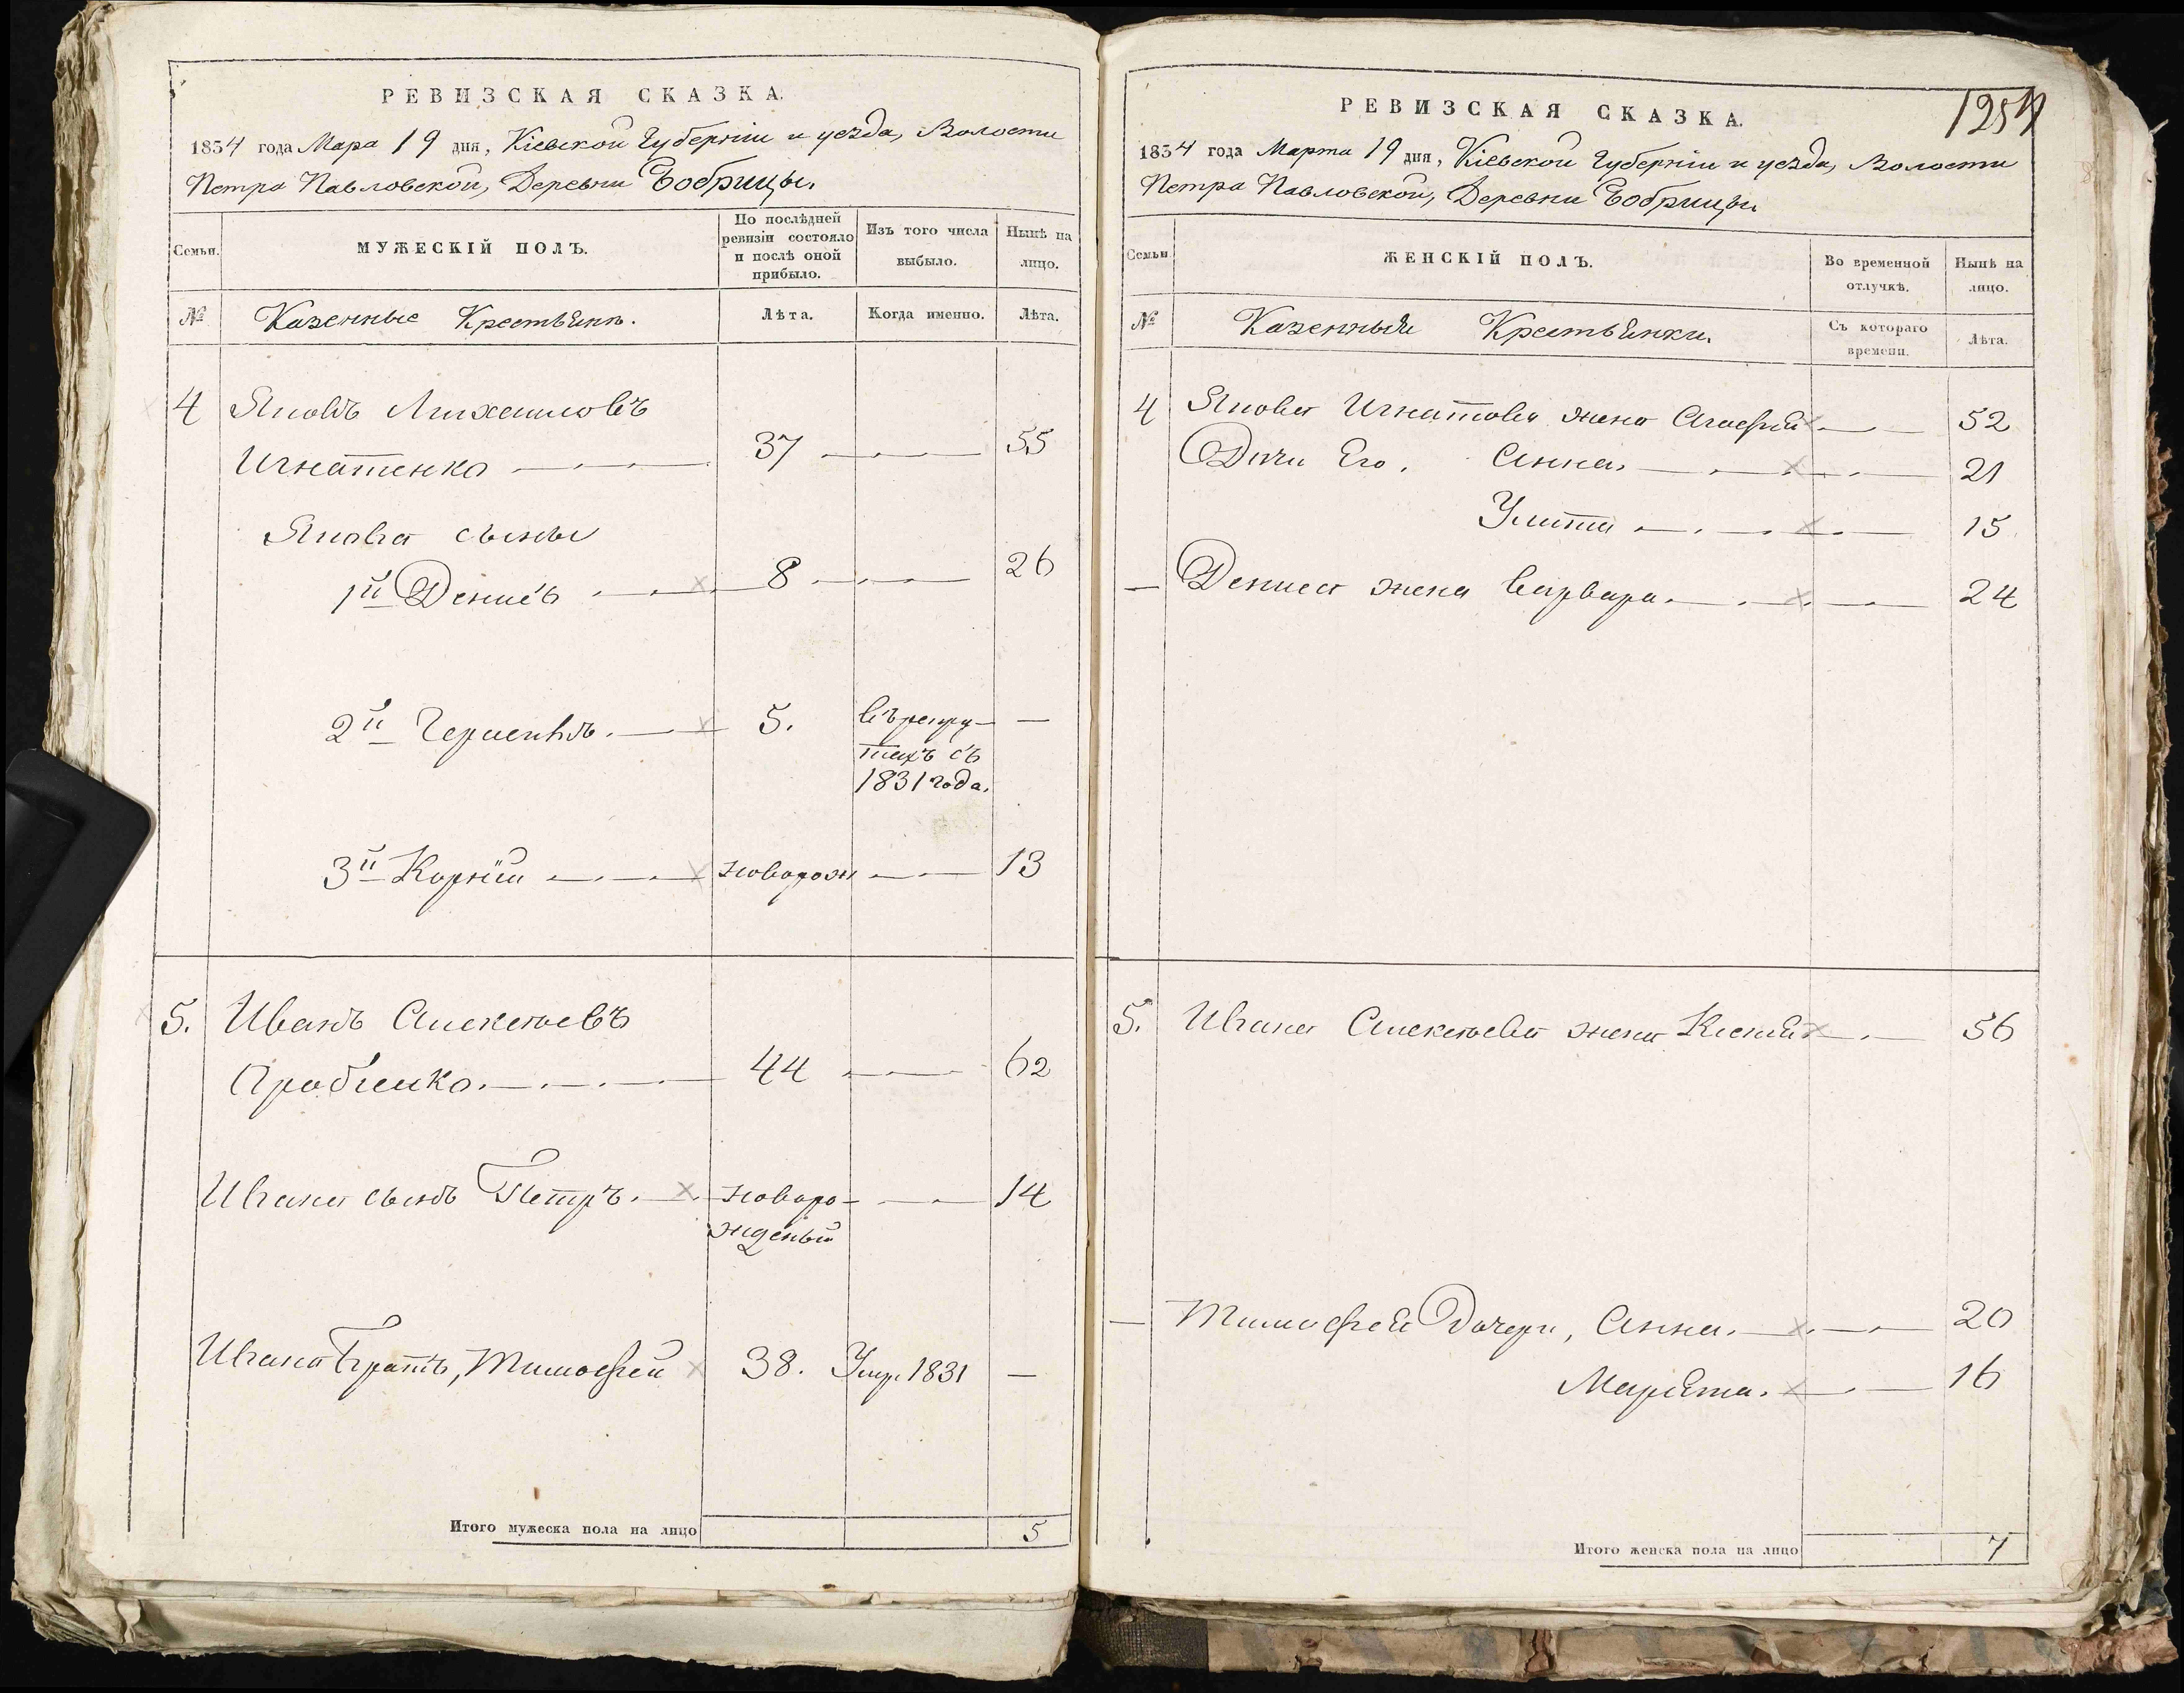 РЕВИЗСКАЯ СКАЗКА.
1834 года Мара 19 дня, Кіевской Губерніи и уезда, Волости
Петра Павловской, Деревни Бобрицы.
Семьи.
МУЖЕСКІЙ ПОЛЪ.
По послѣдней ревизіи состояло и послѣ оной прибыло.
Изъ того числа выбыло.
Нынѣ на лицо.
№ Казенные Крестьяне.
Лѣта. Когда именно. Лѣта.
4 Яковъ Михайловъ
Игнатенко 37 55
Якова сыны
1й Денисъ 8 26
2й Герасимъ. 5. въ рекру- —
тахъ съ
1831 года.
3й Корній новорож 13
5. Иванъ Алексѣевъ
44 62
Ивана сынъ Петръ. новоро- 14
жденый
Ивана Братъ, Тимофей 38. Умр. 1831 —
Итого мужеска пола на лицо 5
1254
РЕВИЗСКАЯ СКАЗКА.
1834 года Марта 19 дня, Кіевской Губерніи и уезда, Волости
Петра Павловской, Деревни Бобрицы
Семьи
ЖЕНСКІЙ ПОЛЪ.
Во временной отлучкѣ.
Нынѣ на лицо.
№ Казенныя Крестьянки.
Съ котораго времени. Лѣта.
4 Якова Игнатова жена Агафія 52
Дочи Его. Анна. 21
Улита 15
— Дениса жена Варвара. 24
5. Ивана Алексѣева жена Ксенія 56
— Тимофея Дочери, Анна. 20
Марѣта. 16
Итого женска пола на лицо 7